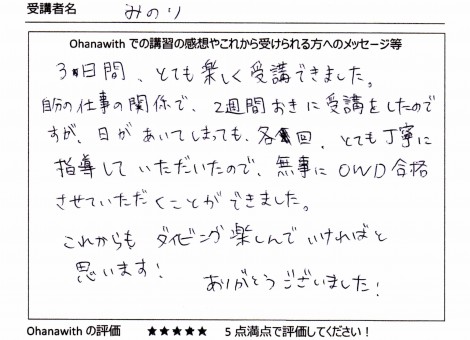 受講者名 みのり
Ohanawith での講習の感想やこれから受けられる方へのメッセージ等
3日間、とても楽しく受講できました。
自分の仕事の関係で、2週間おきに受講をしたので
すが、日があいてしまっても、各回、とても丁寧に
指導していただいたので、無事に OWD 合格
させていただくことができました。
これからも ダイビング楽しんでいければと
思います!
ありがとうございました!
Ohanawith の評価 ★★★★★ 5点満点で評価してください!